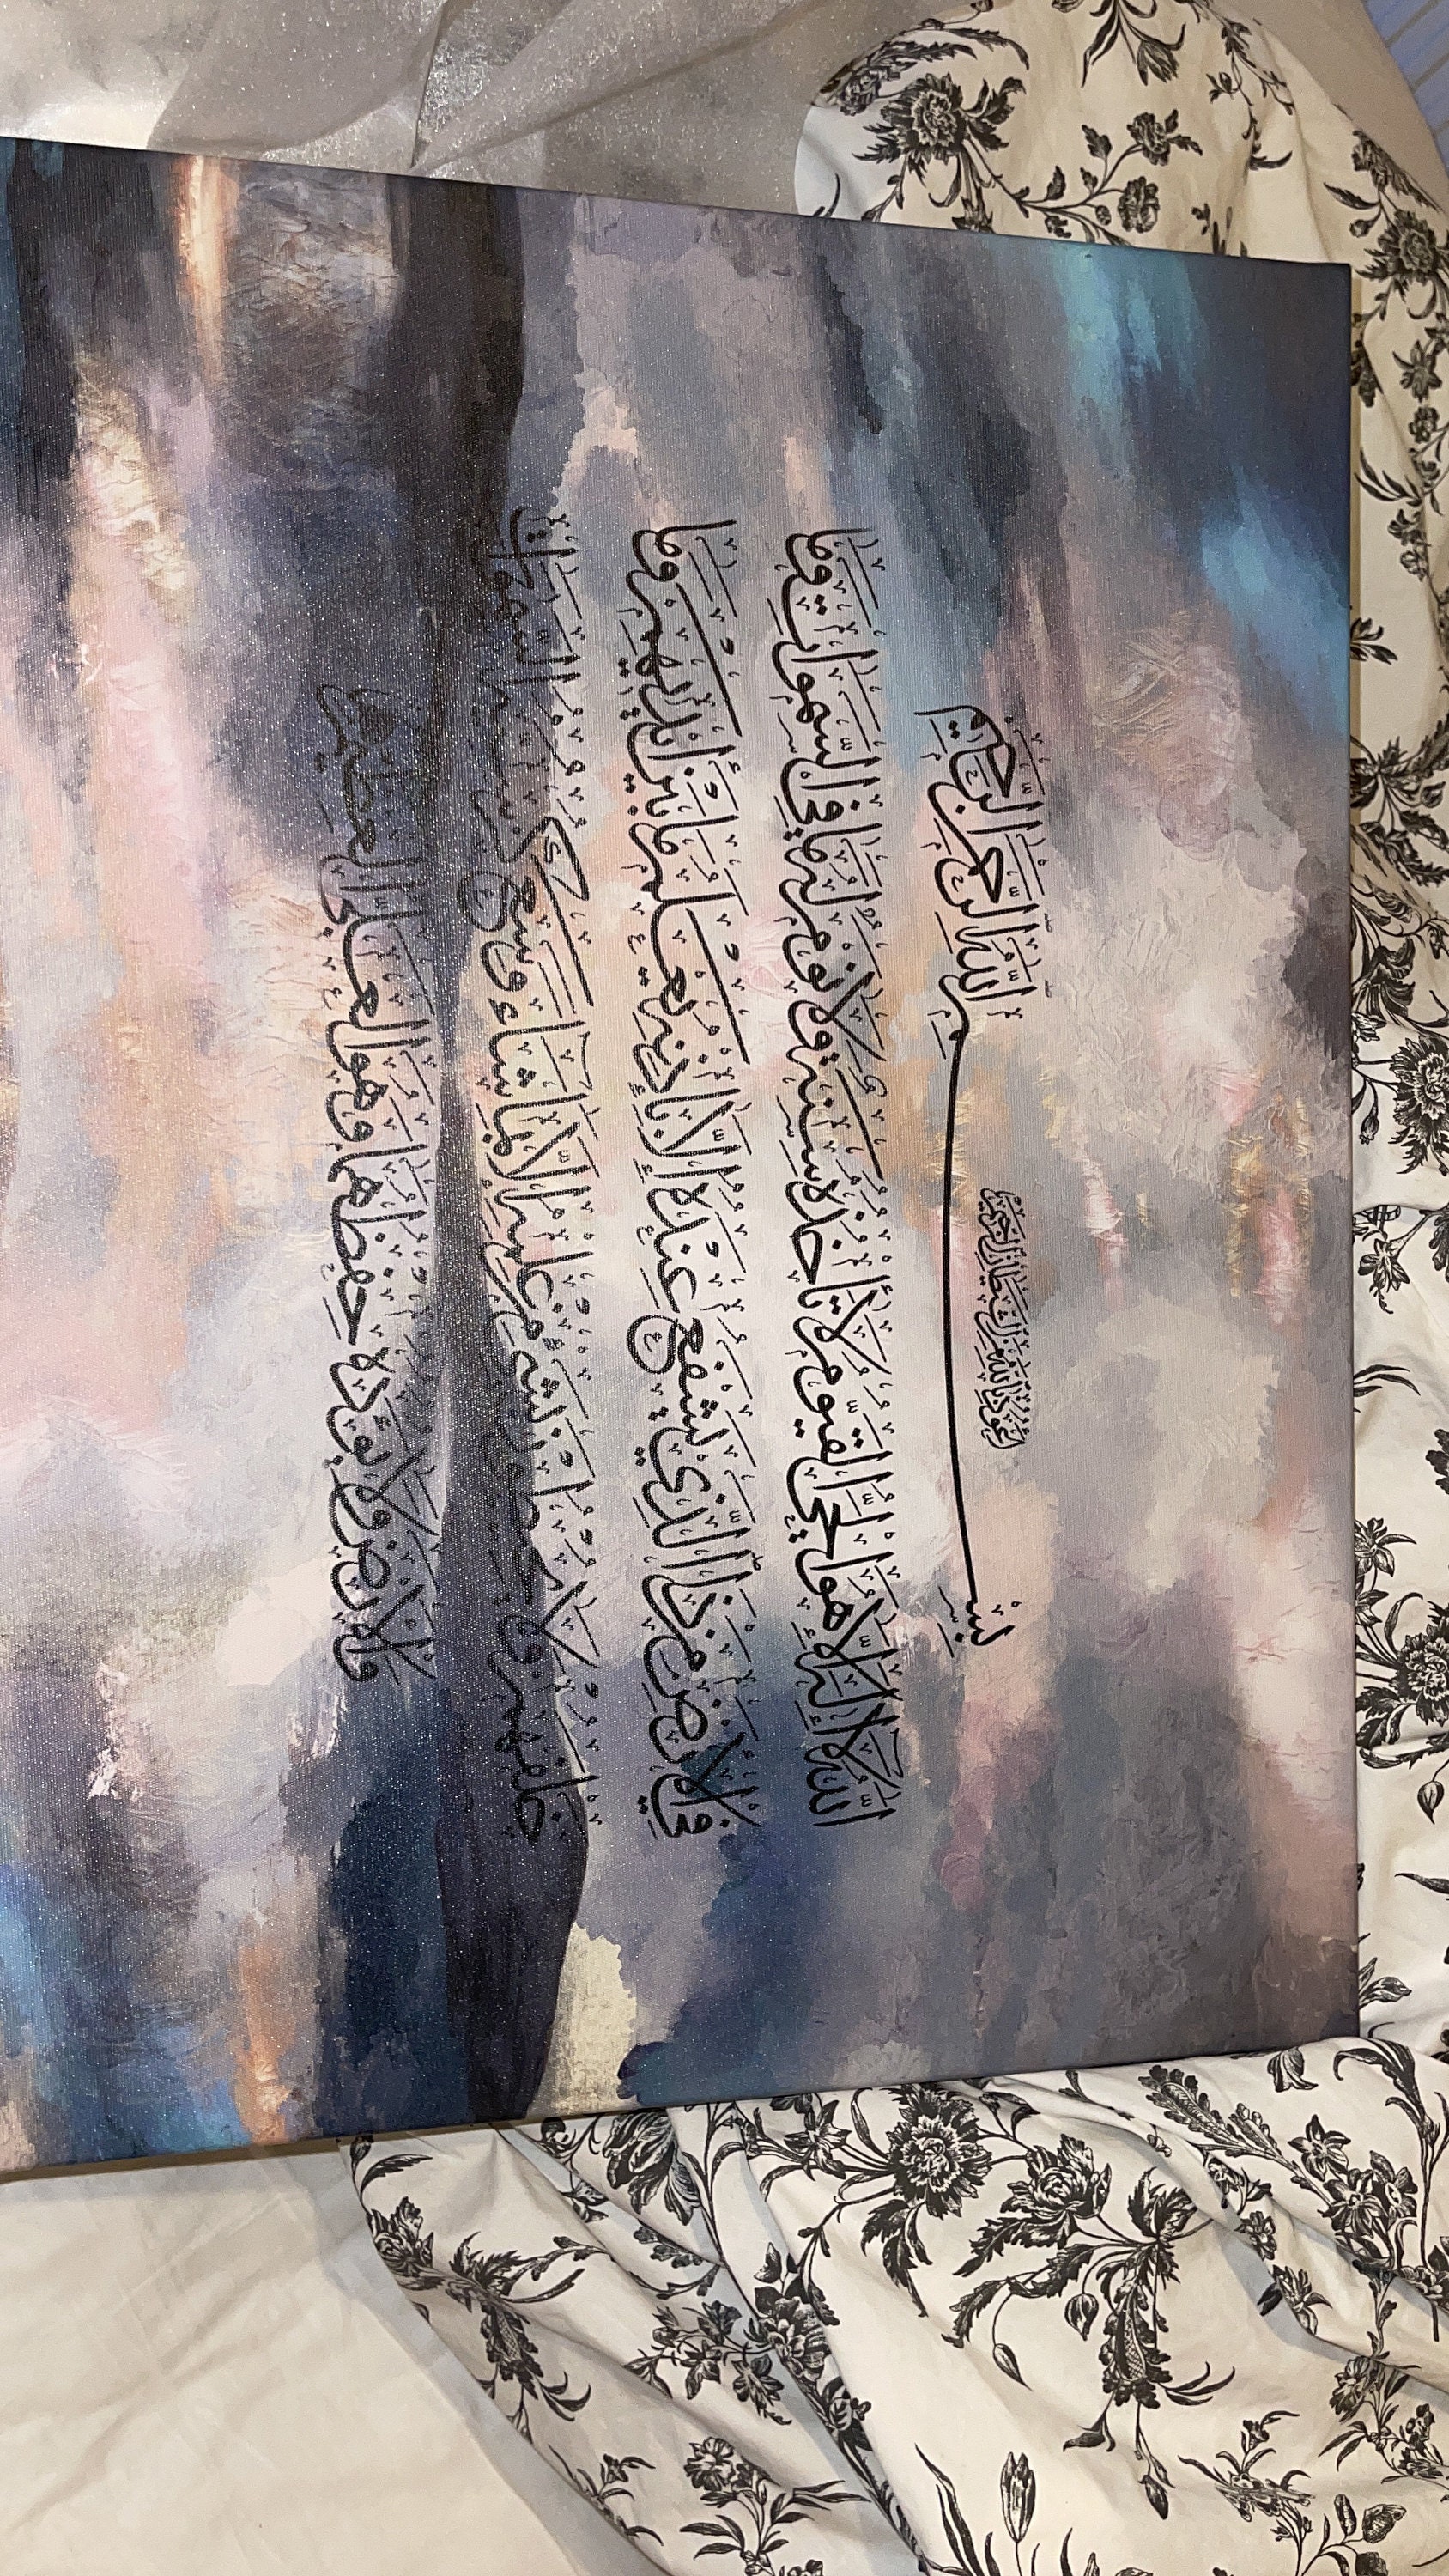 أَعُوذُ بِاللَّهِ مِنَ الشَّيْطَانِ الرَّجِيمِ
بِسْمِ اللَّهِ الرَّحْمَٰنِ الرَّحِيمِ
اللَّهُ لَا إِلَٰهَ إِلَّا هُوَ الْحَيُّ الْقَيُّومُ لَا تَأْخُذُهُ سِنَةٌ وَلَا نَوْمٌ لَهُ مَا فِي السَّمَوَاتِ وَمَا
فِي الْأَرْضِ مَنْ ذَا الَّذِي يَشْفَعُ عِنْدَهُ إِلَّا بِإِذْنِهِ يَعْلَمُ مَا بَيْنَ أَيْدِيهِمْ وَمَا
خَلْفَهُمْ وَلَا يُحِيطُونَ بِشَيْءٍ مِنْ عِلْمِهِ إِلَّا بِمَا شَاءَ وَسِعَ كُرْسِيُّهُ السَّمَوَاتِ
وَالْأَرْضَ وَلَا يَؤُدُهُ حِفْظُهُمَا وَهُوَ الْعَلِيُّ الْعَظِيمُ